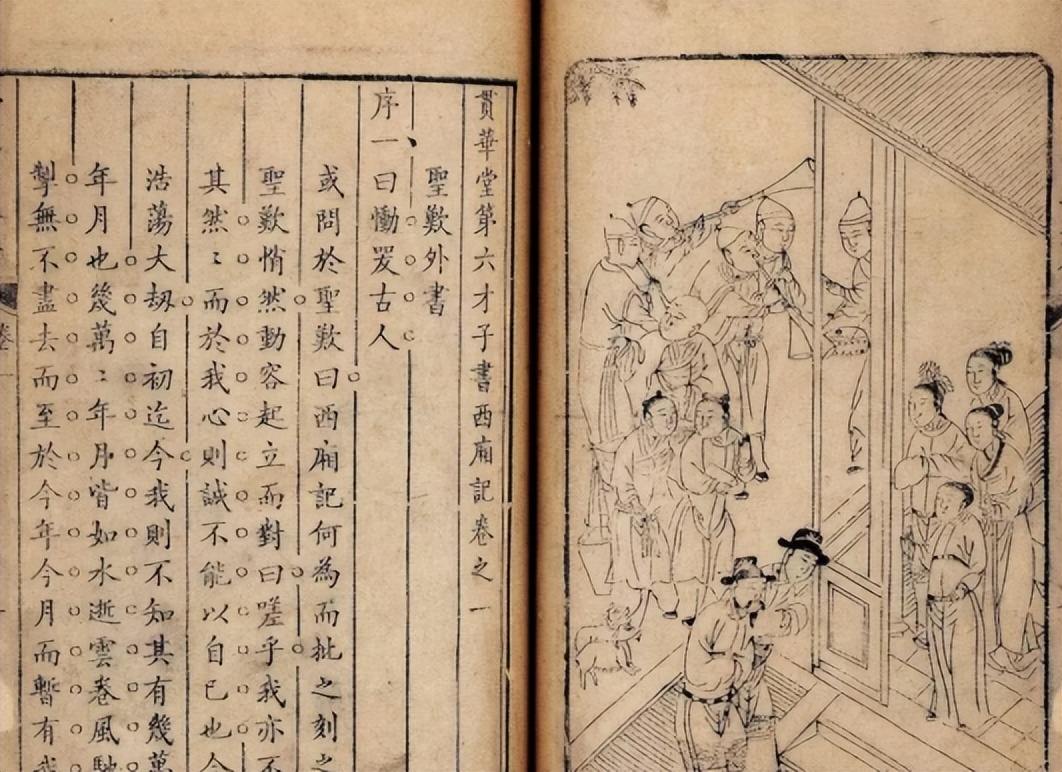 貫華堂第六才子書西廂記卷之一
聖歎外書
序一曰慟哭古人
或問於聖歎曰西廂記何為而批之刻之
聖歎悄然動容起立而對曰嗟乎我亦不
其然〻而於我心則誠不能以自已也今
浩蕩大刼自初迄今我則不知其有幾萬
年月也幾萬〻年月皆如水逝雲卷風馳
掣無不盡去而至於今年今月而暫有我